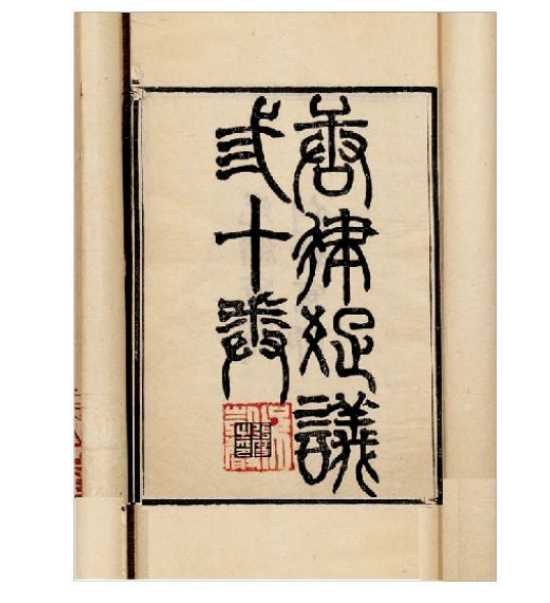 唐律疏議
弎十卷